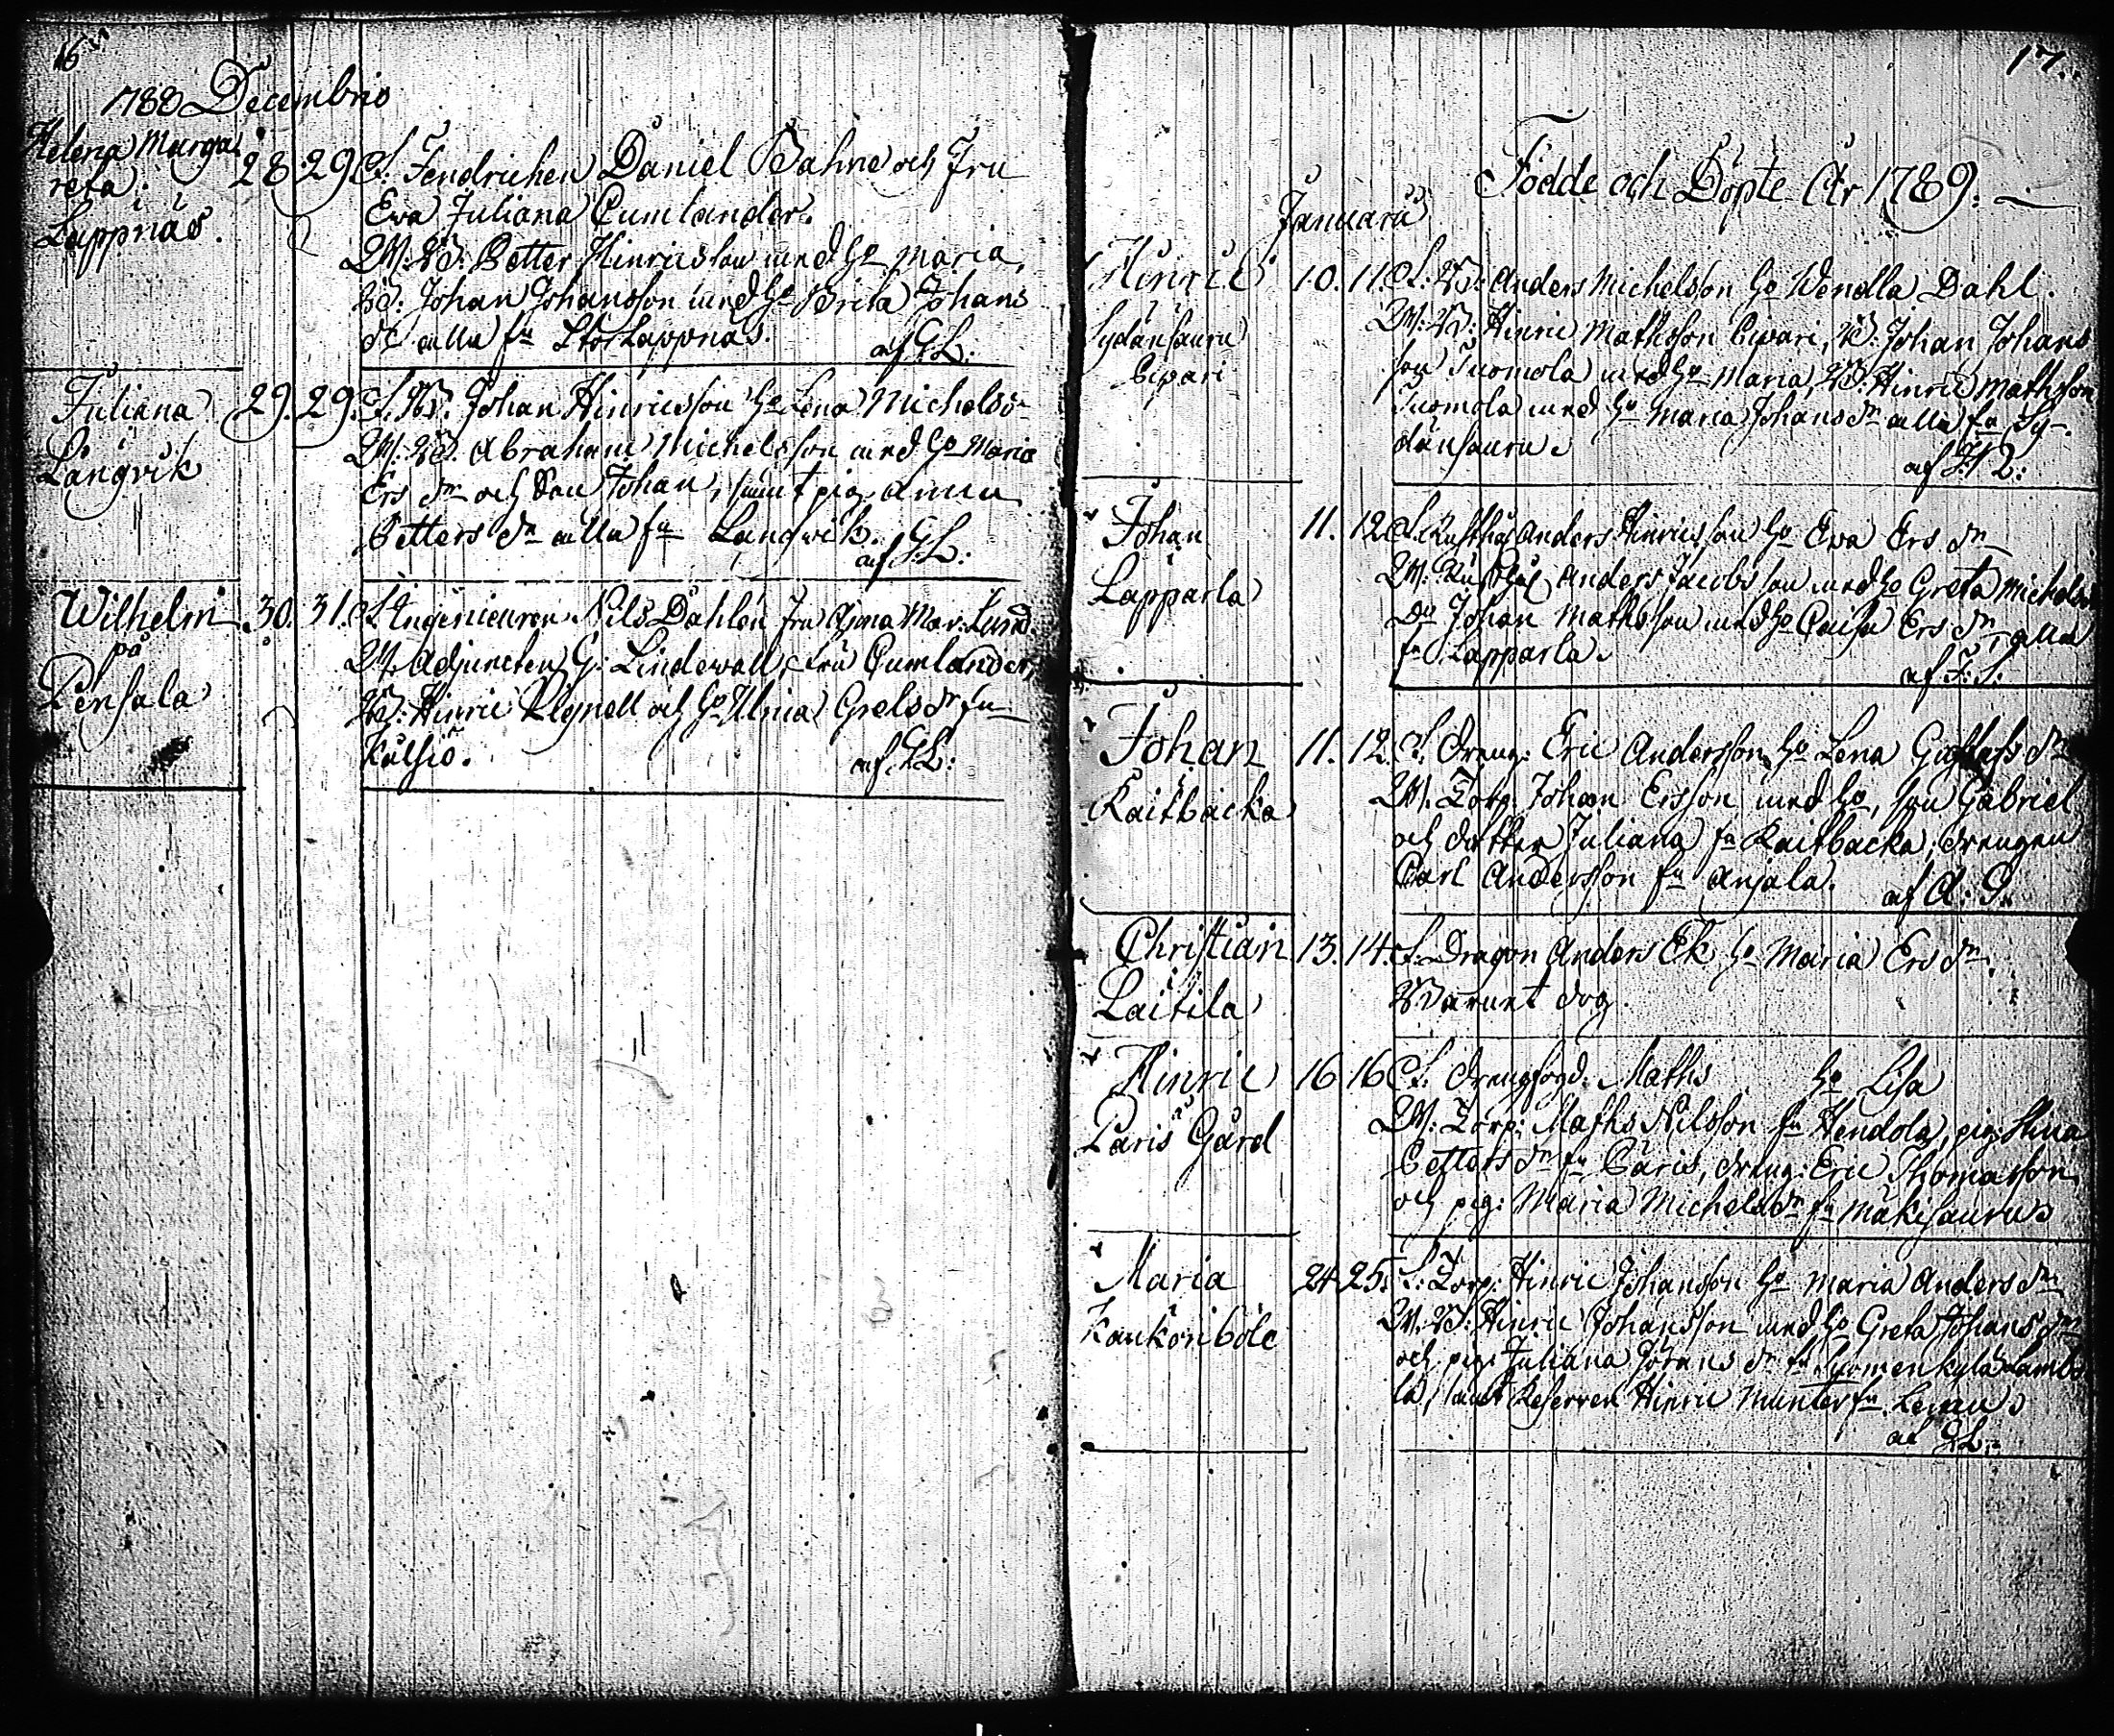 16
1788 Decembris
Helena Marga
reta.
Lappnäs.
28. 29. F. Fendrichen Daniel Bahne och Fru
Eva Juliana Cumlander.
W. B. Petter Hinricsson med Ho Maria,
B. Johan Johansson med Ho Brita Johans
dr alla fn Stor Lappnäs. af GL:
Juliana
Långvik
29. 29. F. B. Johan Hinricsson Ho Lena Michelsd
W. B. Abraham Michelsson med Ho Maria
Ers dr och Son Johan, samt pig. Anna
Petters dr alla fn Långwik. af GL:
Wilhelm
på
Pensala
30. 31. F. Ingenieuren Nils Dahlen Fru Anna Mar. Lund.
W. Adjuncten G. Lindewall, Fru Cumlander,
B: Hinric Regnell och Ho Ulrica Grels dr fn
Kulsio. af GL:
17.
Födde och Döpte År 1789.
Januarii
Hinric
Sydänsauru
Pipari
10. 11. F. B: Anders Michelsson Ho Wendla Dahl.
W. B: Hinric Mathsson Pipari, B. Johan Johans
son Tuomola med Ho Maria, B. Hinric Mathsson
Tuomola med Ho Maria Johans dr alla fn Sy-
dänsauru.
Johan
Lapparla
11. 12. F. Rusthål Anders Hinricsson Ho Eva Ers dr
W. Rusthål Anders Jacobsson med Ho Greta Michels
Do Johan Mathsson med Ho Caisa Ers dr, alla
fn Lapparla.
af F: S.
Johan
Kaitbacka
11. 12. F. dreng: Eric Andersson Ho Lena Gustafs dr
W. Torp: Johan Ersson med Ho, son Gabriel
och dotter Juliana fn Kaitbacka, drengen
Carl Andersson fn Anjala. af A: S.
Christian
Laitila
13. 14. F. Dragon Anders Ek Ho Maria Ers dr.
Barnet dog.
Hinric
Paris Gård
16 16 F. drengfogd. Maths Ho Lisa
W. Torp: Maths Nilsson fn Hendola, pig. Stina
Petters dr fn Paris, dreng: Eric Thomasson
och pig: Maria Michels dr fn Mäkisauru
Maria
Kaukoriböle
24 25. F: Torp: Hinric Johansson Ho Maria Anders dr
W. B: Hinric Johansson med Ho Greta Johans dr
och pig: Juliana Görans dr fn Suomenkylä Lamb
la, samt Reserven Hinric Munter fn
af GL: